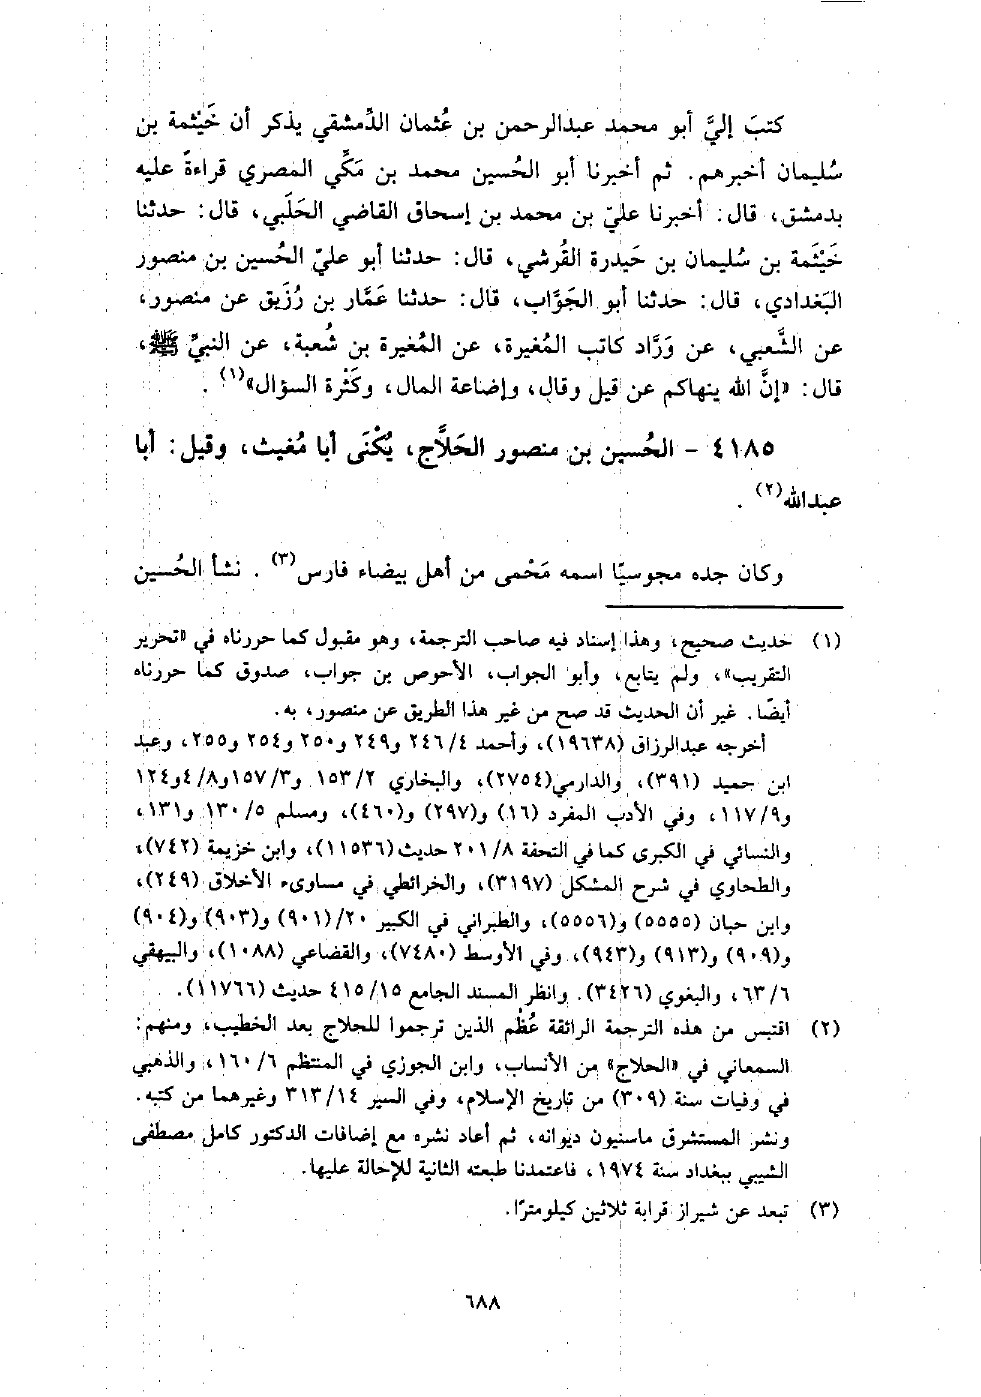 كتبَ إليَّ أبو محمد عبدالرحمن بن عُثمان الدِّمشقي يذكر أن خَيْثمة بن
سُليمان أخبرهم. ثم أخبرنا أبو الحُسين محمد بن مَكِّي المصري قراءةً عليه
بدمشق، قال: أخبرنا عليّ بن محمد بن إسحاق القاضي الحَلَبي، قال: حدثنا
خَيْثَمة بن سُليمان بن حَيدرة القُرشي، قال: حدثنا أبو عليّ الحُسين بن منصور
البَغدادي، قال: حدثنا أبو الجَوَّاب، قال: حدثنا عَمَّار بن رُزَيق عن منصور،
عن الشَّعبي، عن وَرَّاد كاتب المُغيرة، عن المُغيرة بن شُعبة، عن النبيِّ ﷺ،
قال: «إنَّ الله ينهاكم عن قيل وقال، وإضاعة المال، وكَثْرة السؤال»(١).
٤١٨٥ - الحُسين بن منصور الحَلَّاج، يُكْنَى أبا مُغيث، وقيل: أبا
عبدالله(٢).
وكان جده مجوسيًا اسمه مَحْمى من أهل بيضاء فارس(٣). نشأ الحُسين
(١) حديث صحيح، وهذا إسناد فيه صاحب الترجمة، وهو مقبول كما حررناه في «تحرير
التقريب»، ولم يتابع، وأبو الجواب، الأحوص بن جواب، صدوق كما حررناه
أيضًا. غير أن الحديث قد صح من غير هذا الطريق عن منصور، به.
أخرجه عبدالرزاق (١٩٦٣٨)، وأحمد ٤/ ٢٤٦ و٢٤٩ و٢٥٠ و٢٥٤ و٢٥٥، وعبد
ابن حميد (٣٩١)، والدارمي(٢٧٥٤)، والبخاري ٢/ ١٥٣ و٣/ ١٥٧و٨/ ٤و١٢٤
و٩/ ١١٧، وفي الأدب المفرد (١٦) و(٢٩٧) و(٤٦٠)، ومسلم ٥/ ١٣٠ و١٣١،
والنسائي في الكبرى كما في التحفة ٨/ ٢٠١ حديث(١١٥٣٦)، وابن خزيمة (٧٤٢)،
والطحاوي في شرح المشكل (٣١٩٧)، والخرائطي في مساوىء الأخلاق (٢٤٩)،
وابن حبان (٥٥٥٥) و(٥٥٥٦)، والطبراني في الكبير ٢٠/ (٩٠١) و(٩٠٣) و(٩٠٤)
و(٩٠٩) و(٩١٣) و(٩٤٣)، وفي الأوسط (٧٤٨٠)، والقضاعي (١٠٨٨)، والبيهقي
٦/ ٦٣، والبغوي (٣٤٢٦). وانظر المسند الجامع ١٥/ ٤١٥ حديث (١١٧٦٦).
(٢) اقتبس من هذه الترجمة الرائقة عُظْم الذين ترجموا للحلاج بعد الخطيب، ومنهم:
السمعاني في «الحلاج» من الأنساب، وابن الجوزي في المنتظم ٦/ ١٦٠، والذهبي
في وفيات سنة (٣٠٩) من تاريخ الإسلام، وفي السير ١٤/ ٣١٣ وغيرهما من كتبه.
ونشر المستشرق ماسنيون ديوانه، ثم أعاد نشره مع إضافات الدكتور كامل مصطفى
الشيبي ببغداد سنة ١٩٧٤، فاعتمدنا طبعته الثانية للإحالة عليها.
(٣) تبعد عن شيراز قرابة ثلاثين كيلومترًا.
٦٨٨